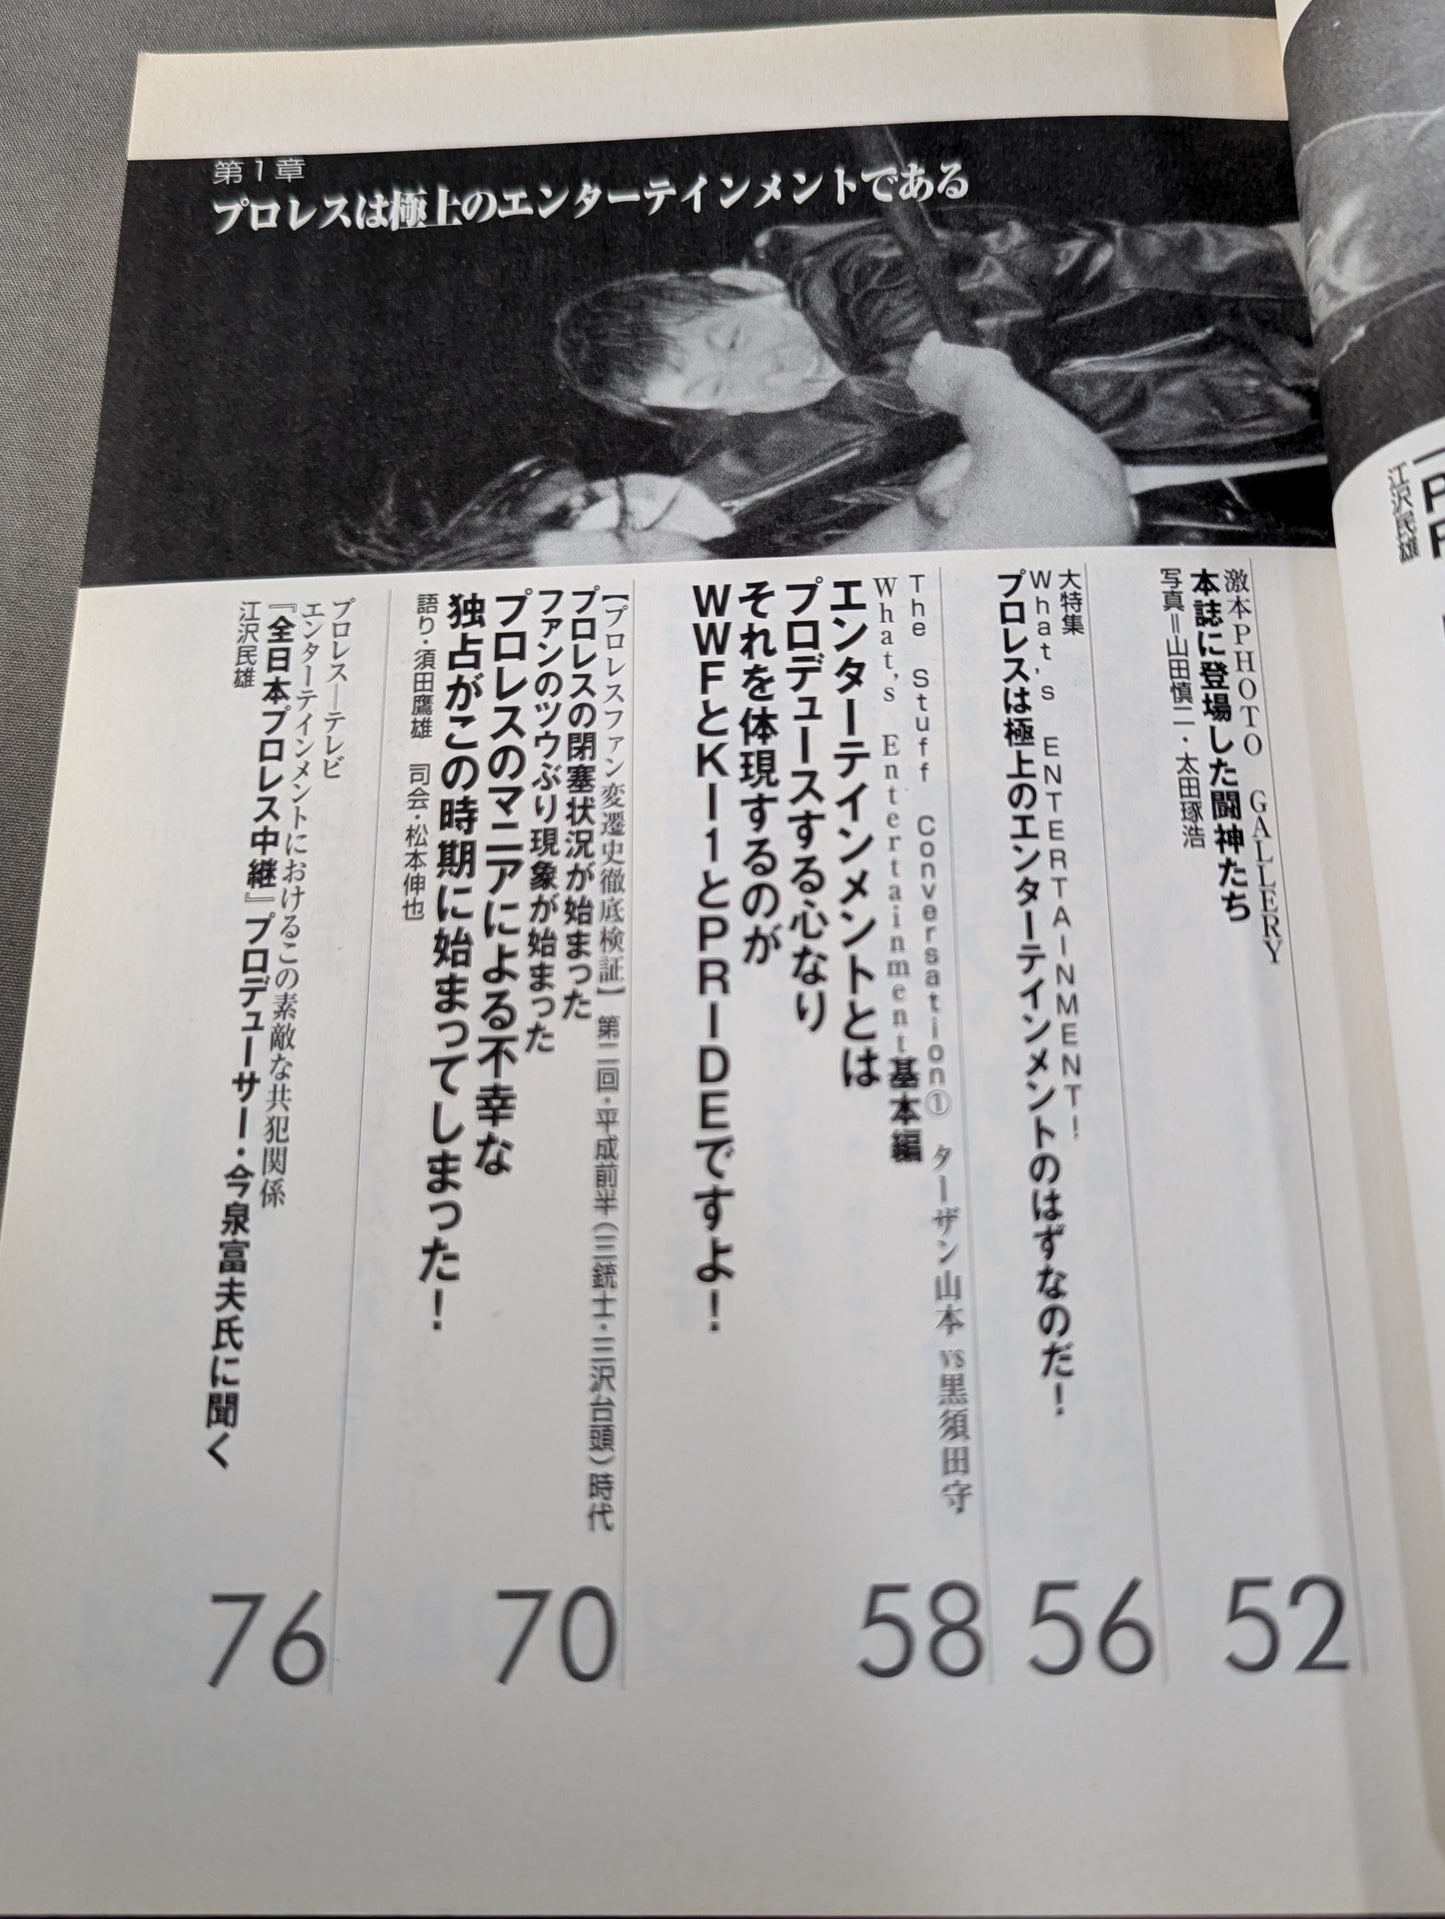 第1章
プロレスは極上のエンターテインメントである
激本PHOTO GALLERY
本誌に登場した闘神たち
写真＝山田慎二・太田琢浩
52
大特集
What's ENTERTAINMENT!
プロレスは極上のエンターテインメントのはずなのだ！
56
The Stuff Conversation① ターザン山本 vs 黒須田守
What's Entertainment基本編
エンターテインメントとは
プロデュースする心なり
それを体現するのが
WWFとK-1とPRIDEですよ！
58
【プロレスファン変遷史徹底検証】 第二回・平成前半（三銃士・三沢台頭）時代
プロレスの閉塞状況が始まった
ファンのツウぶり現象が始まった
プロレスのマニアによる不幸な
独占がこの時期に始まってしまった！
語り・須田鷹雄 司会・松本伸也
70
プロレス―テレビ
エンターテインメントにおけるこの素敵な共犯関係
『全日本プロレス中継』プロデューサー・今泉富夫氏に聞く
江沢民雄
76
江沢民雄